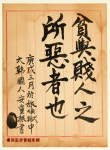 貧與賤人之
所惡者也
庚戌三月於旅順獄中
大韓國人安重根書